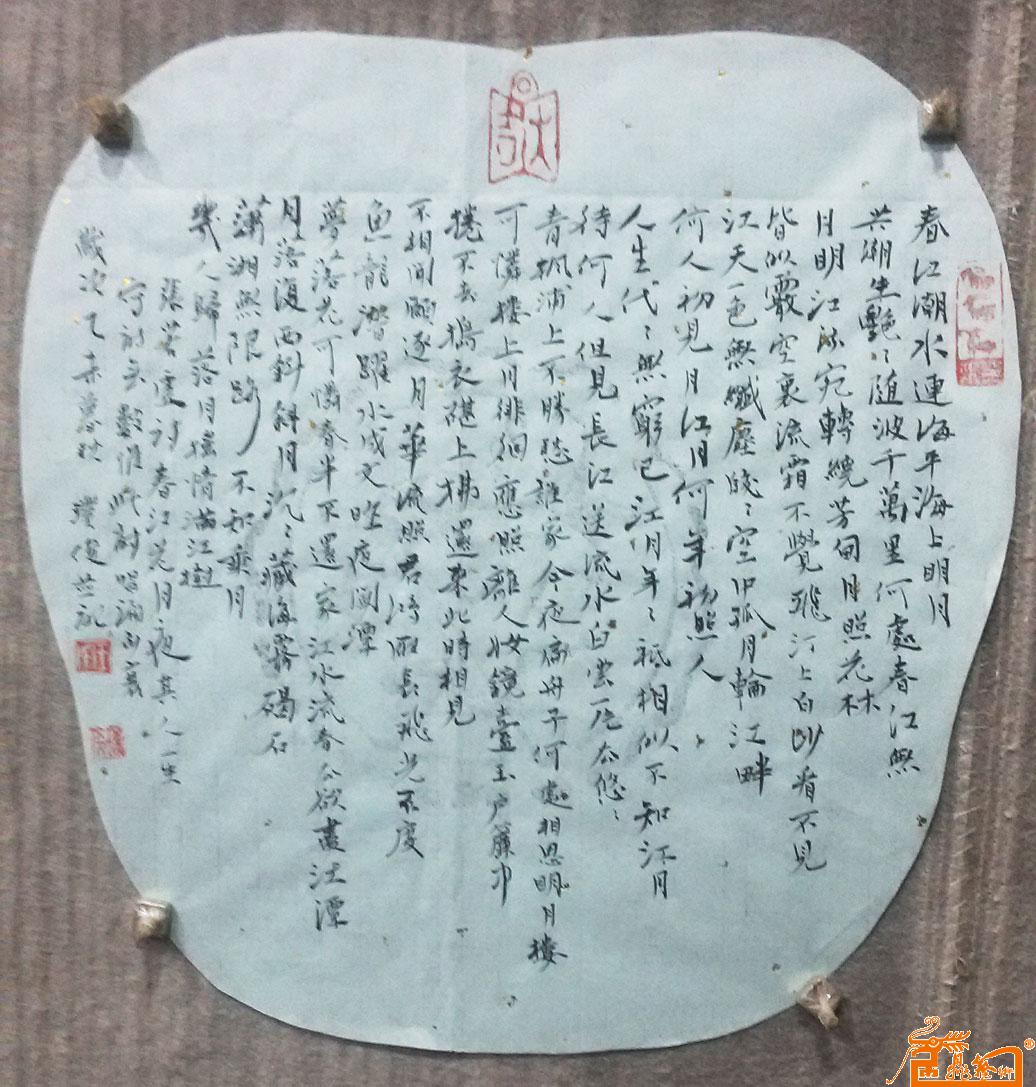 春江潮水連海平海上明月
共潮生艷〻随波千萬里何處春江無
月明江流宛轉繞芳甸月照花林
皆似霰空裏流霜不覺飛汀上白沙看不見
江天一色無纖塵皎〻空中孤月輪江畔
何人初見月江月何年初照人
人生代〻無窮已江月年〻祗相似不知江月
待何人但見長江送流水白雲一片去悠〻
青楓浦上不勝愁誰家今夜扁舟子何處相思明月樓
可憐樓上月徘徊應照離人妝鏡臺玉户簾中
捲不去搗衣砧上拂還來此時相見
不相聞願逐月華流照君鴻雁長飛光不度
魚龍潛躍水成文昨夜閒潭
夢落花可憐春半不還家江水流春去欲盡江潭
月落復西斜斜月沉〻藏海霧碣石
瀟湘無限路不知乘月
幾人歸落月摇情滿江樹
張若虚詩春江花月夜其人一生
寫詩無數惟此詩
歲次乙未暮秋